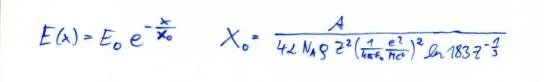 E(x) = E₀ e^{-x/X₀}    X₀ = A / (4α N_A ρ Z² (1/(4πε₀) e²/(mc²))² ln 183 Z^{-1/3})